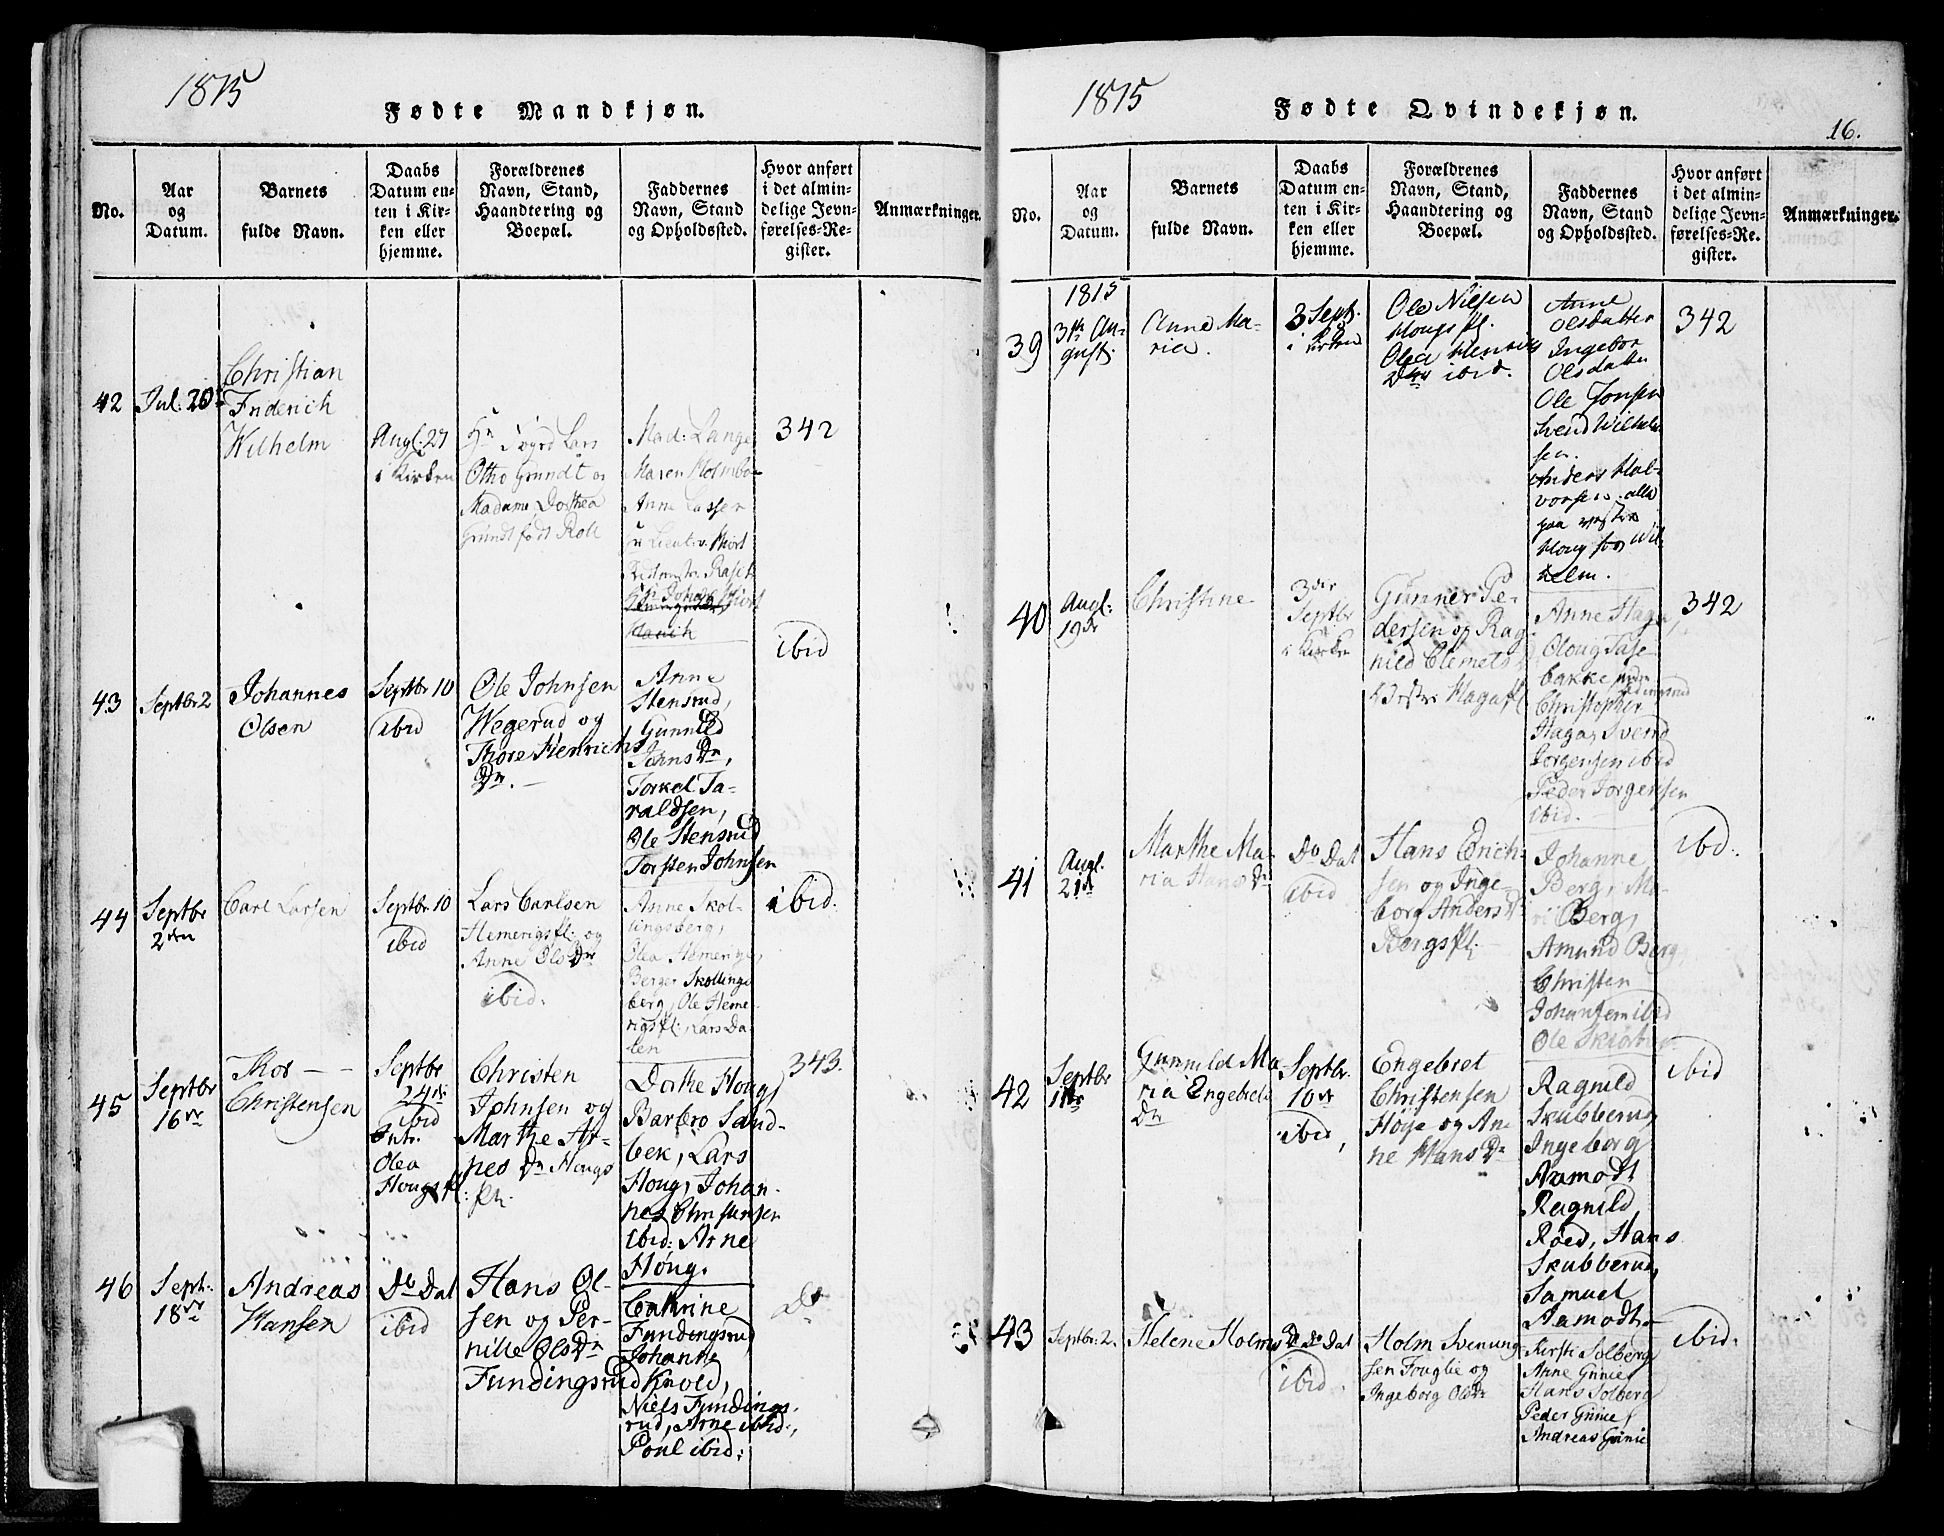 1815
Fødte Mandkjøn.
No.
Aar
og
Datum.
Barnets
fulde Navn.
Daabs
Datum en-
ten i Kir-
ken eller
hjemme.
Forældrenes
Navn, Stand,
Haandtering og
Boepæl.
Faddernes
Navn, Stand
og Opholdssted.
Hvor anført
i det almin-
delige Jevn-
førelses-Re-
gister.
Anmærkninger.
42
Jul. 20
Christian
Friderich
Wilhelm
Augl: 27
i Kirken
Lars
Otho Grundt og
Madame Dorthea
Grundt født Roll
Mad: Lange
Maren Holmboe
Anne
342
43
Septbr 2
Johannes
Olsen
Septbr 10
ibid
Ole Johnsen
Wegerud og
Thore Henrichs
Dr. —
Anne
Stensrud,
Gunnild
Johns Dr,
Torkel Ta-
raldsen,
Ole Stensrud
Torsten Johnsen
ibid
44
Septbr
2den
Carl Larsen
Septbr. 10
ibid
Lars Carlsen
Hemerigsfl: og
Anne Ols Dr
ibid:
Anne Skol-
lingsberg,
Olea Hemerig,
Berger Skollings
berg, Ole Heme-
rigsfl:, Lars Da-
len
ibid:
45
Septbr
16de
Thor — —
Christensen
Septbr
24de
ibid
Intr.
Olea
Hougsfl:
Christen
Johnsen og
Marthe Ar-
nes Dr Hougs
fl.
Dorthe Houg,
Barbro Sand-
bek, Lars
Houg, Johan-
nes Christensen
ibid: Arne
Houg.
343.
46
Sept:
18de
Andreas
Hansen
Do Dat
ibid
Hans Ol-
sen og Per-
nille Ols Dr
Fundingsrud
Cathrine
Fundingsrud
Johanne
Knold,
Niels Fundings-
rud, Arne ibid:,
Poul ibid:
Do
1815
Fødte Qvindekjøn.
16.
No.
Aar
og
Datum.
Barnets
fulde Navn.
Daabs
Datum en-
ten i Kir-
ken eller
hjemme.
Forældrenes
Navn, Stand,
Haandtering og
Boepæl.
Faddernes
Navn, Stand
og Opholdssted.
Hvor anført
i det almin-
delige Jevn-
førelses-Re-
gister.
Anmærkninger.
39
1815
3th Au-
gust.
Anne Ma-
ria.
3 Sept.
i Kirken
Ole Nilsen
Hougsfl.
Olea Henrichs
Dr ibid.
Anne
Olsdatter
Ingebor
Olsdatter
Ole Jonsen
Svend Wilhelm-
sen.
Anders Hal-
vorsen. alle
paa vestre
Houg
342
40
Augl:
19de
Christine
3der
Septbr
i Kirken
Gunner Pe-
dersen og Rag-
nild Clemets
Hagafl
Anne Haga,
Oloug Tase-
bakke
Christopher
Haga, Svend
Jorgensen ibid
Peder Jorgensen
ibid.
342
41
Augl.
21de
Marthe Ma-
ria Hans Dr
Do Dat
ibid
Hans Erich-
sen og Inge-
borg Anders Dr
Bergsfl:
Johanne
Berg, Ma-
ri Berg,
Amund Berg,
Christen
Johansen ibid
Ole
ibid:
42
Septbr
1de
Gunnild Ma-
ria Engebrets
Dr
Septbr.
10de
ibid,
Engebret
Christensen
Høye og An-
ne Hans Dr
Ragnild
Skubberud,
Ingeborg
Aamodt
Ragnild
Røed, Hans
Skubberud,
Samuel
Aamodt
ibid
43
Septbr: 2.
Helene Holms Dr
Do Dat
ibid.
Holm Svenung-
sen Fouglie og
Ingeborg Ols Dr
Kirsti Solberg
Anne Grinie
Hans Solberg
Peder Grinie
Andreas Grinie
ibid: